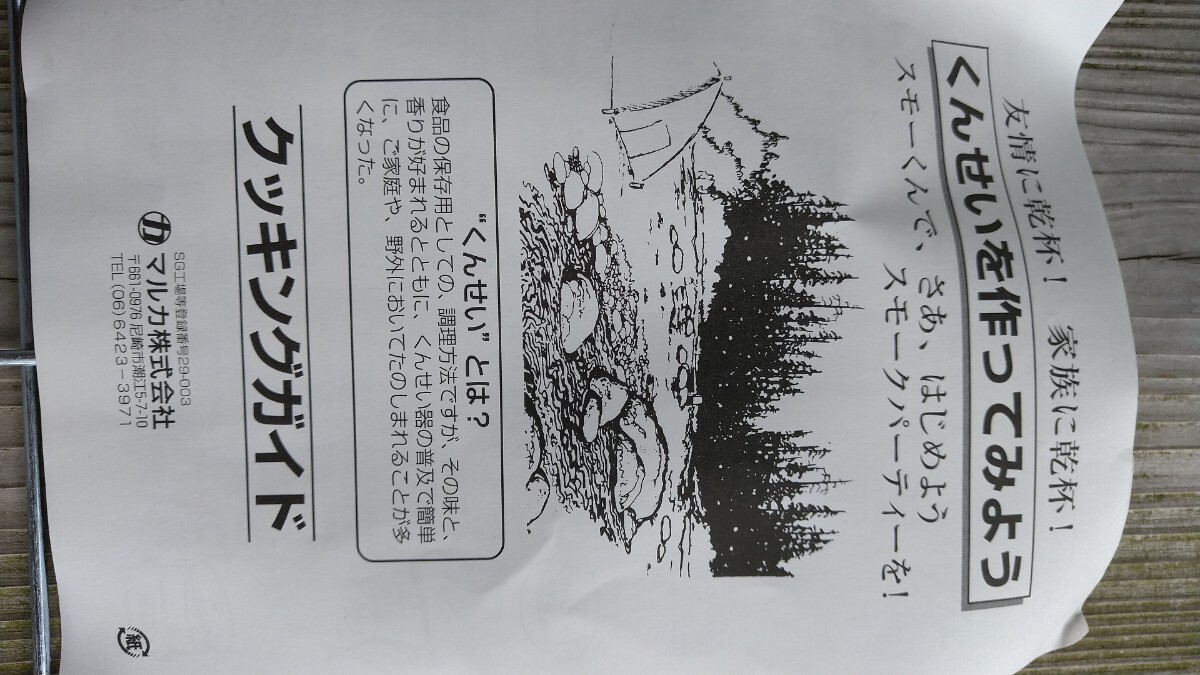 友情に乾杯! 家族に乾杯!
くんせいを作ってみよう
スモーくんで、さあ、はじめよう
スモークパーティーを!
“くんせい”とは?
食品の保存用としての、調理方法ですが、その味と、
香りが好まれるとともに、くんせい器の普及で簡単
に、ご家庭や、野外においてたのしまれることが多
くなった。
クッキングガイド
カ マルカ株式会社
SG工場等登録番号29-003
〒661-0976 尼崎市潮江5-7-10
TEL (06) 6423-3971
紙